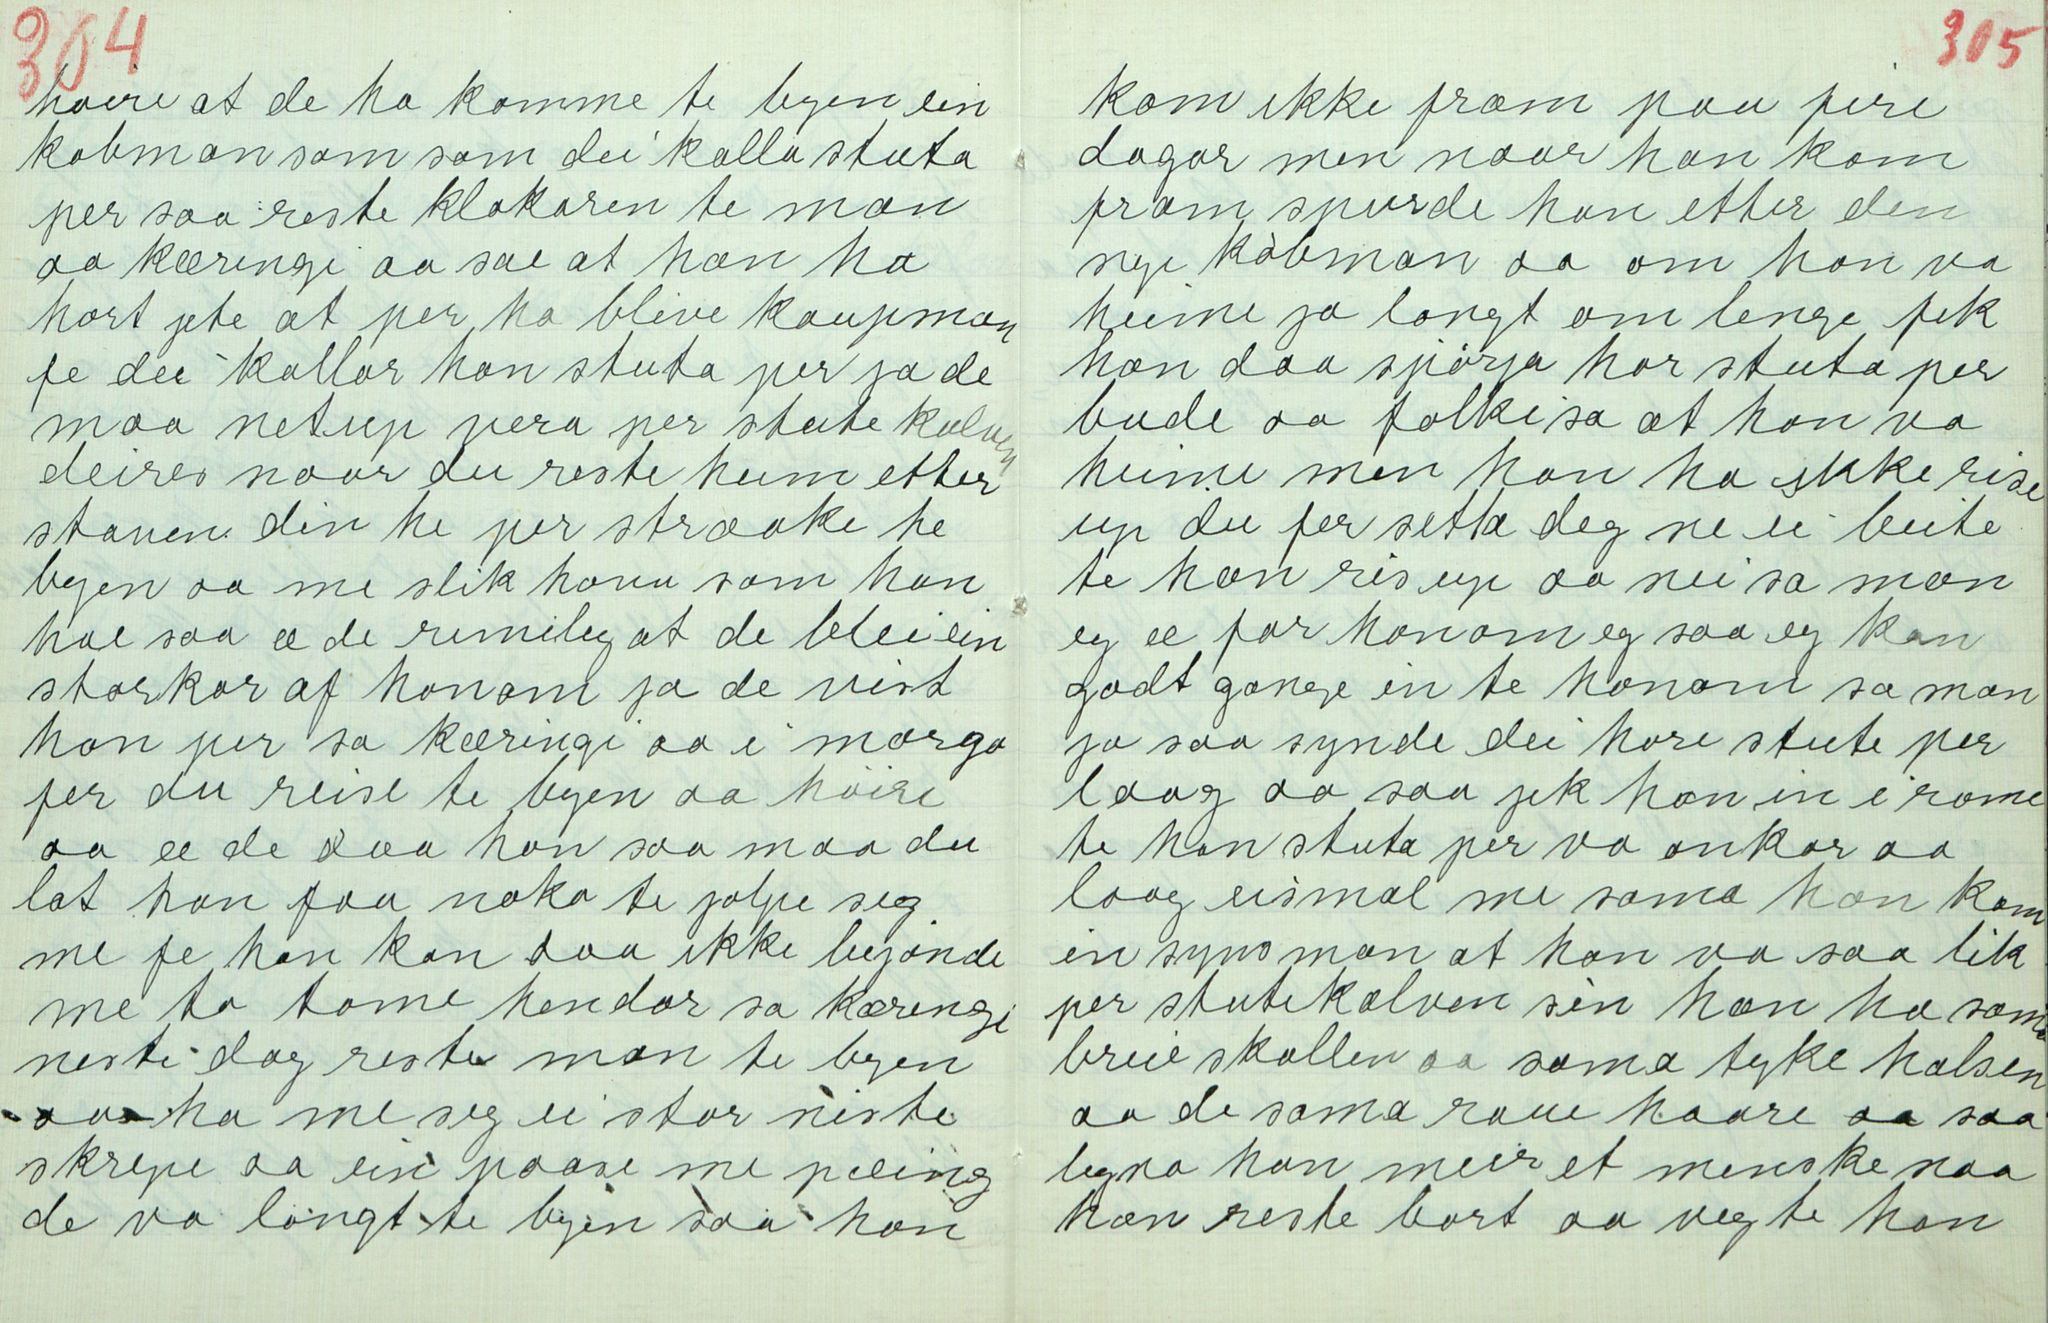 304
høire at de ha komme te byen ein
kobman som som dei kalla stuta
per saa reste klokaren te man
aa kæringi aa sae at han ha
hort jete at per ha blive kaupman
fe dei kallar han stuta per ja de
maa netup vera per stutekalven
deires naar du reste heim etter
staven din he per straake he
byen aa me slik hovu som han
hae saa æ de rimileg at de blei ein
storkar af honom ja de vist
han per sa kæringi aa i morgo
fer du reise te byen aa høire
aa æ de daa han saa maa du
lat han faa noko te jolpe seg
me fe han kan daa ikke byjönde
me to tome hendar sa kæringi
neste dag reste man te byen
aa ha me seg ei stor niste
skrepe aa ein paase me pæing
de va langt te byen saa han
305
kom ikke fram paa fire
dagar men naar han kom
fram spurde han etter den
nye kòbman aa om han va
heime ja langt om lenge fek
han daa spjörja hor stuta per
bude aa folki sa at han va
heime men han ha ikke rise
up du fer setta deg ne ei beite
te han ris up aa nei sa man
eg æ far honom eg saa eg kan
godt gange in te honom sa man
ja saa synde dei hore stute per
laag aa saa jek han in i rome
te han stuta per va onkar aa
laag eismal me sama han kom
in syns man at han va saa lik
per stutekalven sin han ha sama
breie skallen aa sama tyke halsen
aa de sama raue haare aa saa
lyna han meir et menske naa
han reste bort aa veg te han